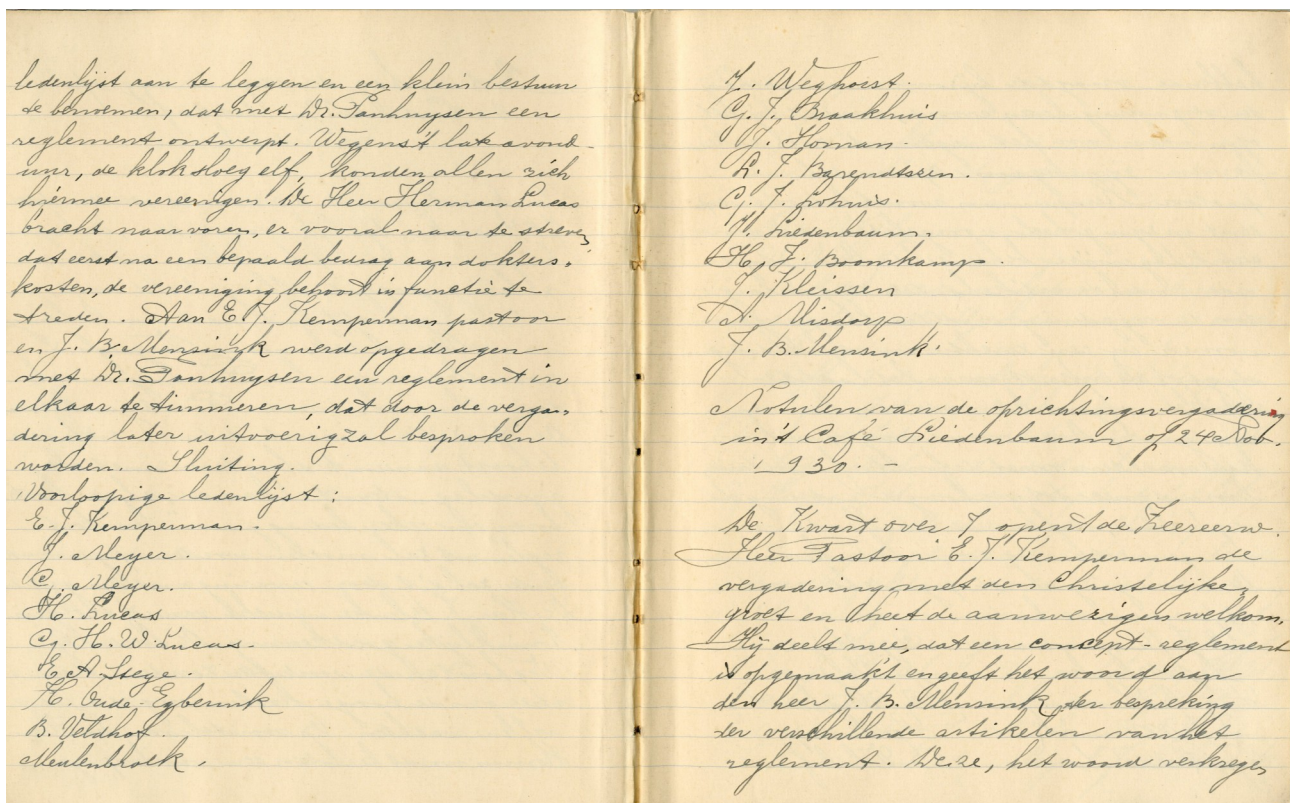 ledenlijst aan te leggen en een klein bestuur
te benoemen, dat met Dr. Panhuysen een
reglement ontwerpt. Wegens 't late avond-
uur, de klok sloeg elf, konden allen zich
hiermee vereenigen. De Heer Herman Lucas
bracht naar voren, er vooral naar te streven
dat eerst na een bepaald bedrag aan dokters-
kosten, de vereeniging behoort in functie te
treden. Aan E. J. Kemperman pastoor
en J. B. Mensink werd opgedragen
met Dr. Panhuysen een reglement in
elkaar te timmeren, dat door de verga-
dering later uitvoerig zal besproken
worden. Sluiting.
Voorloopige ledenlijst:
E. J. Kemperman.
J. Meyer.
G. Meyer.
H. Lucas
G. H. W. Lucas.
E A Stege.
H. Oude-Egberink
B. Veldhof.
Meulenbroek.
J. Weghorst.
G. J. Braakhuis
J. Homan.
L. J. Barendtszen.
G. J. Lohuis.
J. Siedenbaum.
H. J. Boomkamp.
J. Kleissen
A. Misdorp
J. B. Mensink.
Notulen van de oprichtingsvergadering
in 't Café Siedenbaum op 24 Nov.
1930. -
De Kwart over 7 opent de Zeereerw.
Heer Pastoor E. J. Kemperman de
vergadering met den Christelijke
groet en heet de aanwezigen welkom.
Hij deelt mee, dat een concept-reglement
is opgemaakt en geeft het woord aan
den heer J. B. Mensink ter bespreking
der verschillende artikelen van het
reglement. Deze, het woord verkregen